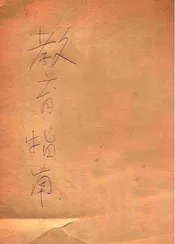 教育指南